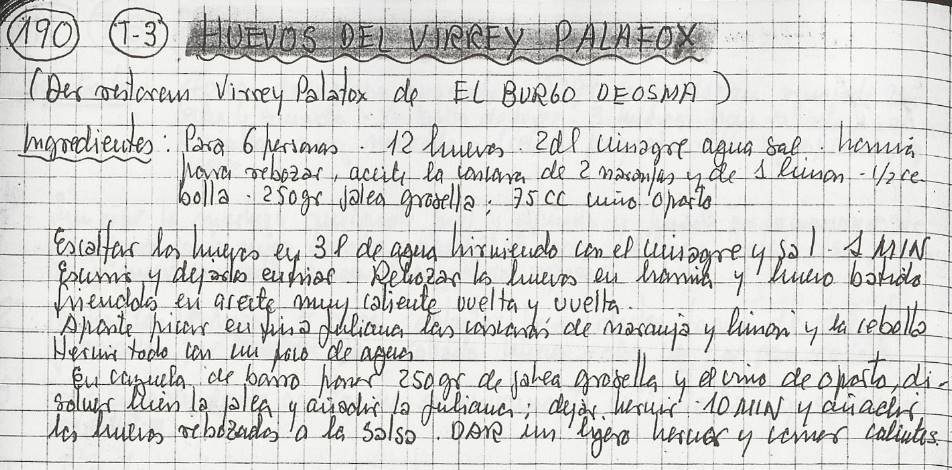 190 T-3 HUEVOS DEL VIRREY PALAFOX
(Del restorem Virrey Palafox de EL BURGO DEOSMA)
Ingredientes: Para 6 personas. 12 huevos. 2dl vinagre agua sal. harina
para rebozar, aceite la cascara de 2 naranjas y de 1 limon - 1/2 ce
bolla. 250gr jalea grosella; 75cc vino oporto
Escalfar los huevos en 3l de agua hirviendo con el vinagre y sal - 1 MIN
Escurrir y dejarlos enfriar. Rebozar los huevos en harina y huevo batido
friendolos en aceite muy caliente vuelta y vuelta.
Aparte picar en fina juliana las cascaras de naranja y limon y la cebolla
Hervir todo con un poco de agua
En cazuela de barro poner 250gr de jalea grosella y el vino de oporto, di-
solver bien la jalea y añadir la juliana; dejar hervir 10 MIN y añadir
los huevos rebozados a la salsa. DAR un ligero hervor y comer calientes.